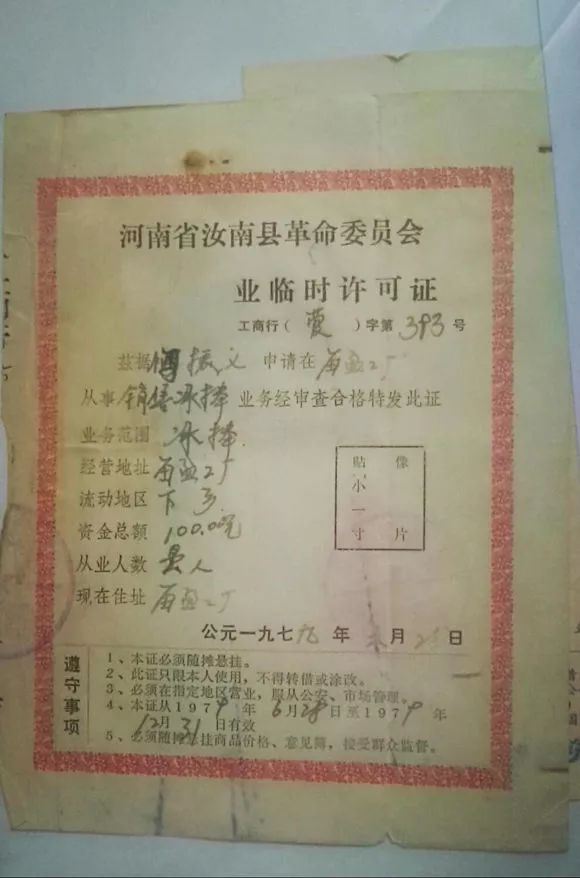 河南省汝南县革命委员会
业临时许可证
工商行( )字第393号
兹据 振义 申请在
从事销售冰棒业务经审查合格特发此证
业务范围 冰棒
经营地址
流动地区 下乡
资金总额 100.00元
从业人数 人
现在住址
贴像
小
一
寸片
公元一九七九年六月28日
遵守事项
1、本证必须随摊悬挂。
2、此证只限本人使用,不得转借或涂改。
3、必须在指定地区营业,服从公安、市场管理。
4、本证从1979年6月28日至1979年
12月31日有效
5、必须随摊悬挂商品价格、意见簿,接受群众监督。